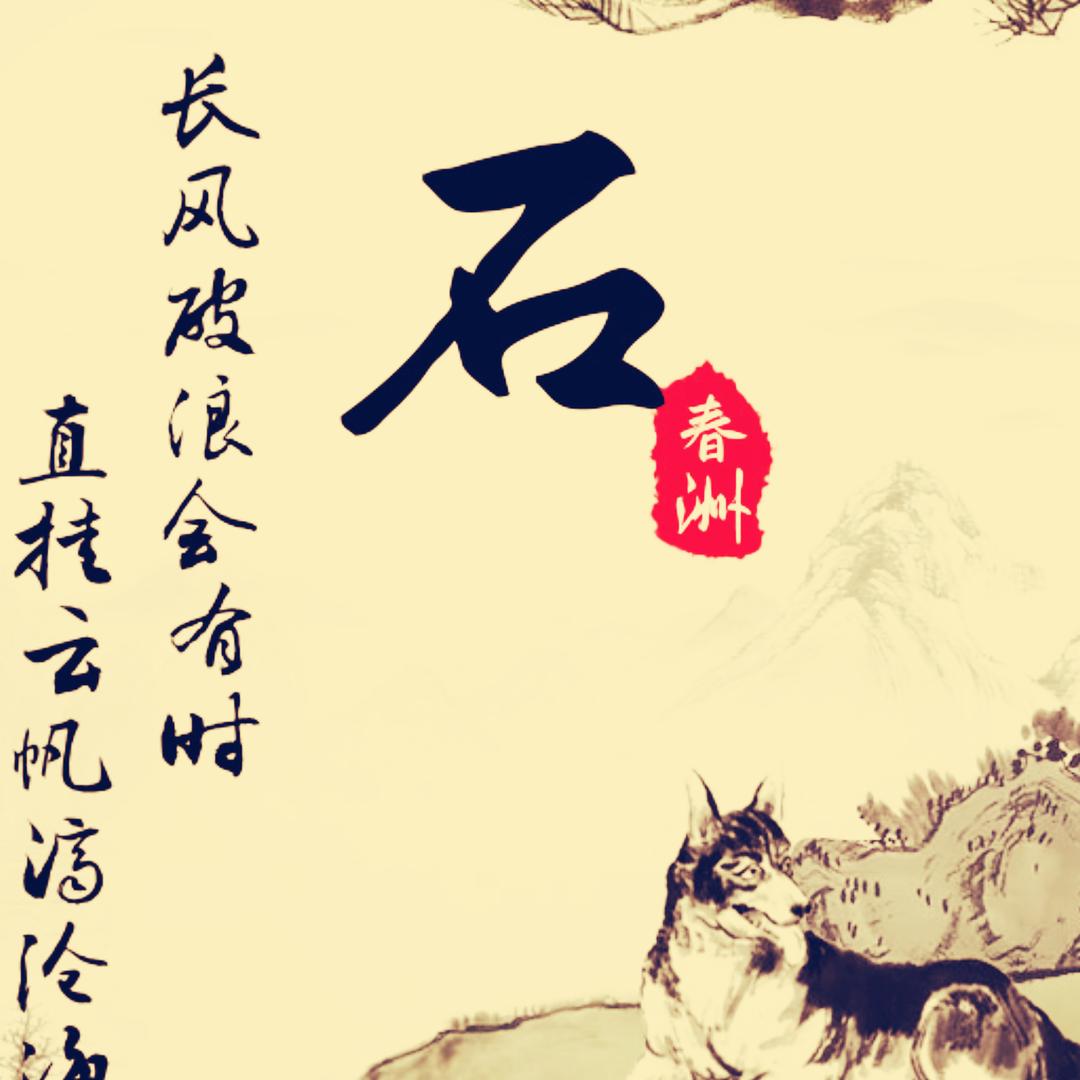 石
春洲
长风破浪会有时
直挂云帆济沧海